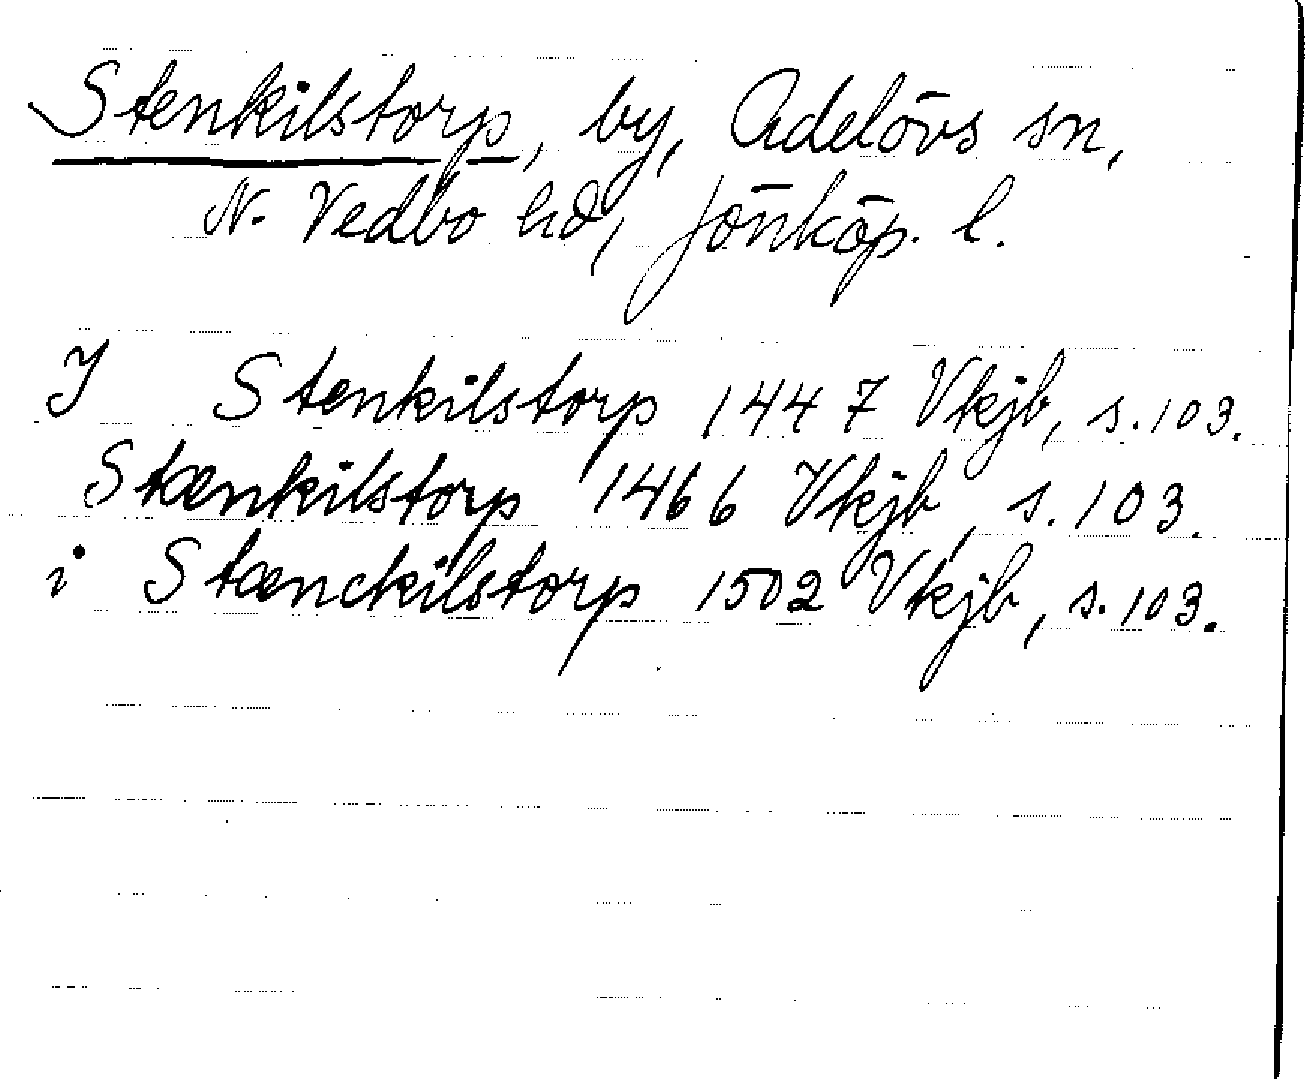 Stenkilstorp, by, Adelövs sn,
N. Vedbo hd, Jönköp. l.
J Stenkilstorp 1447 Vkjb, s. 103.
Stænkilstorp 1466 Vkjb, s. 103.
i Stænckilstorp 1502 Vkjb, s. 103.